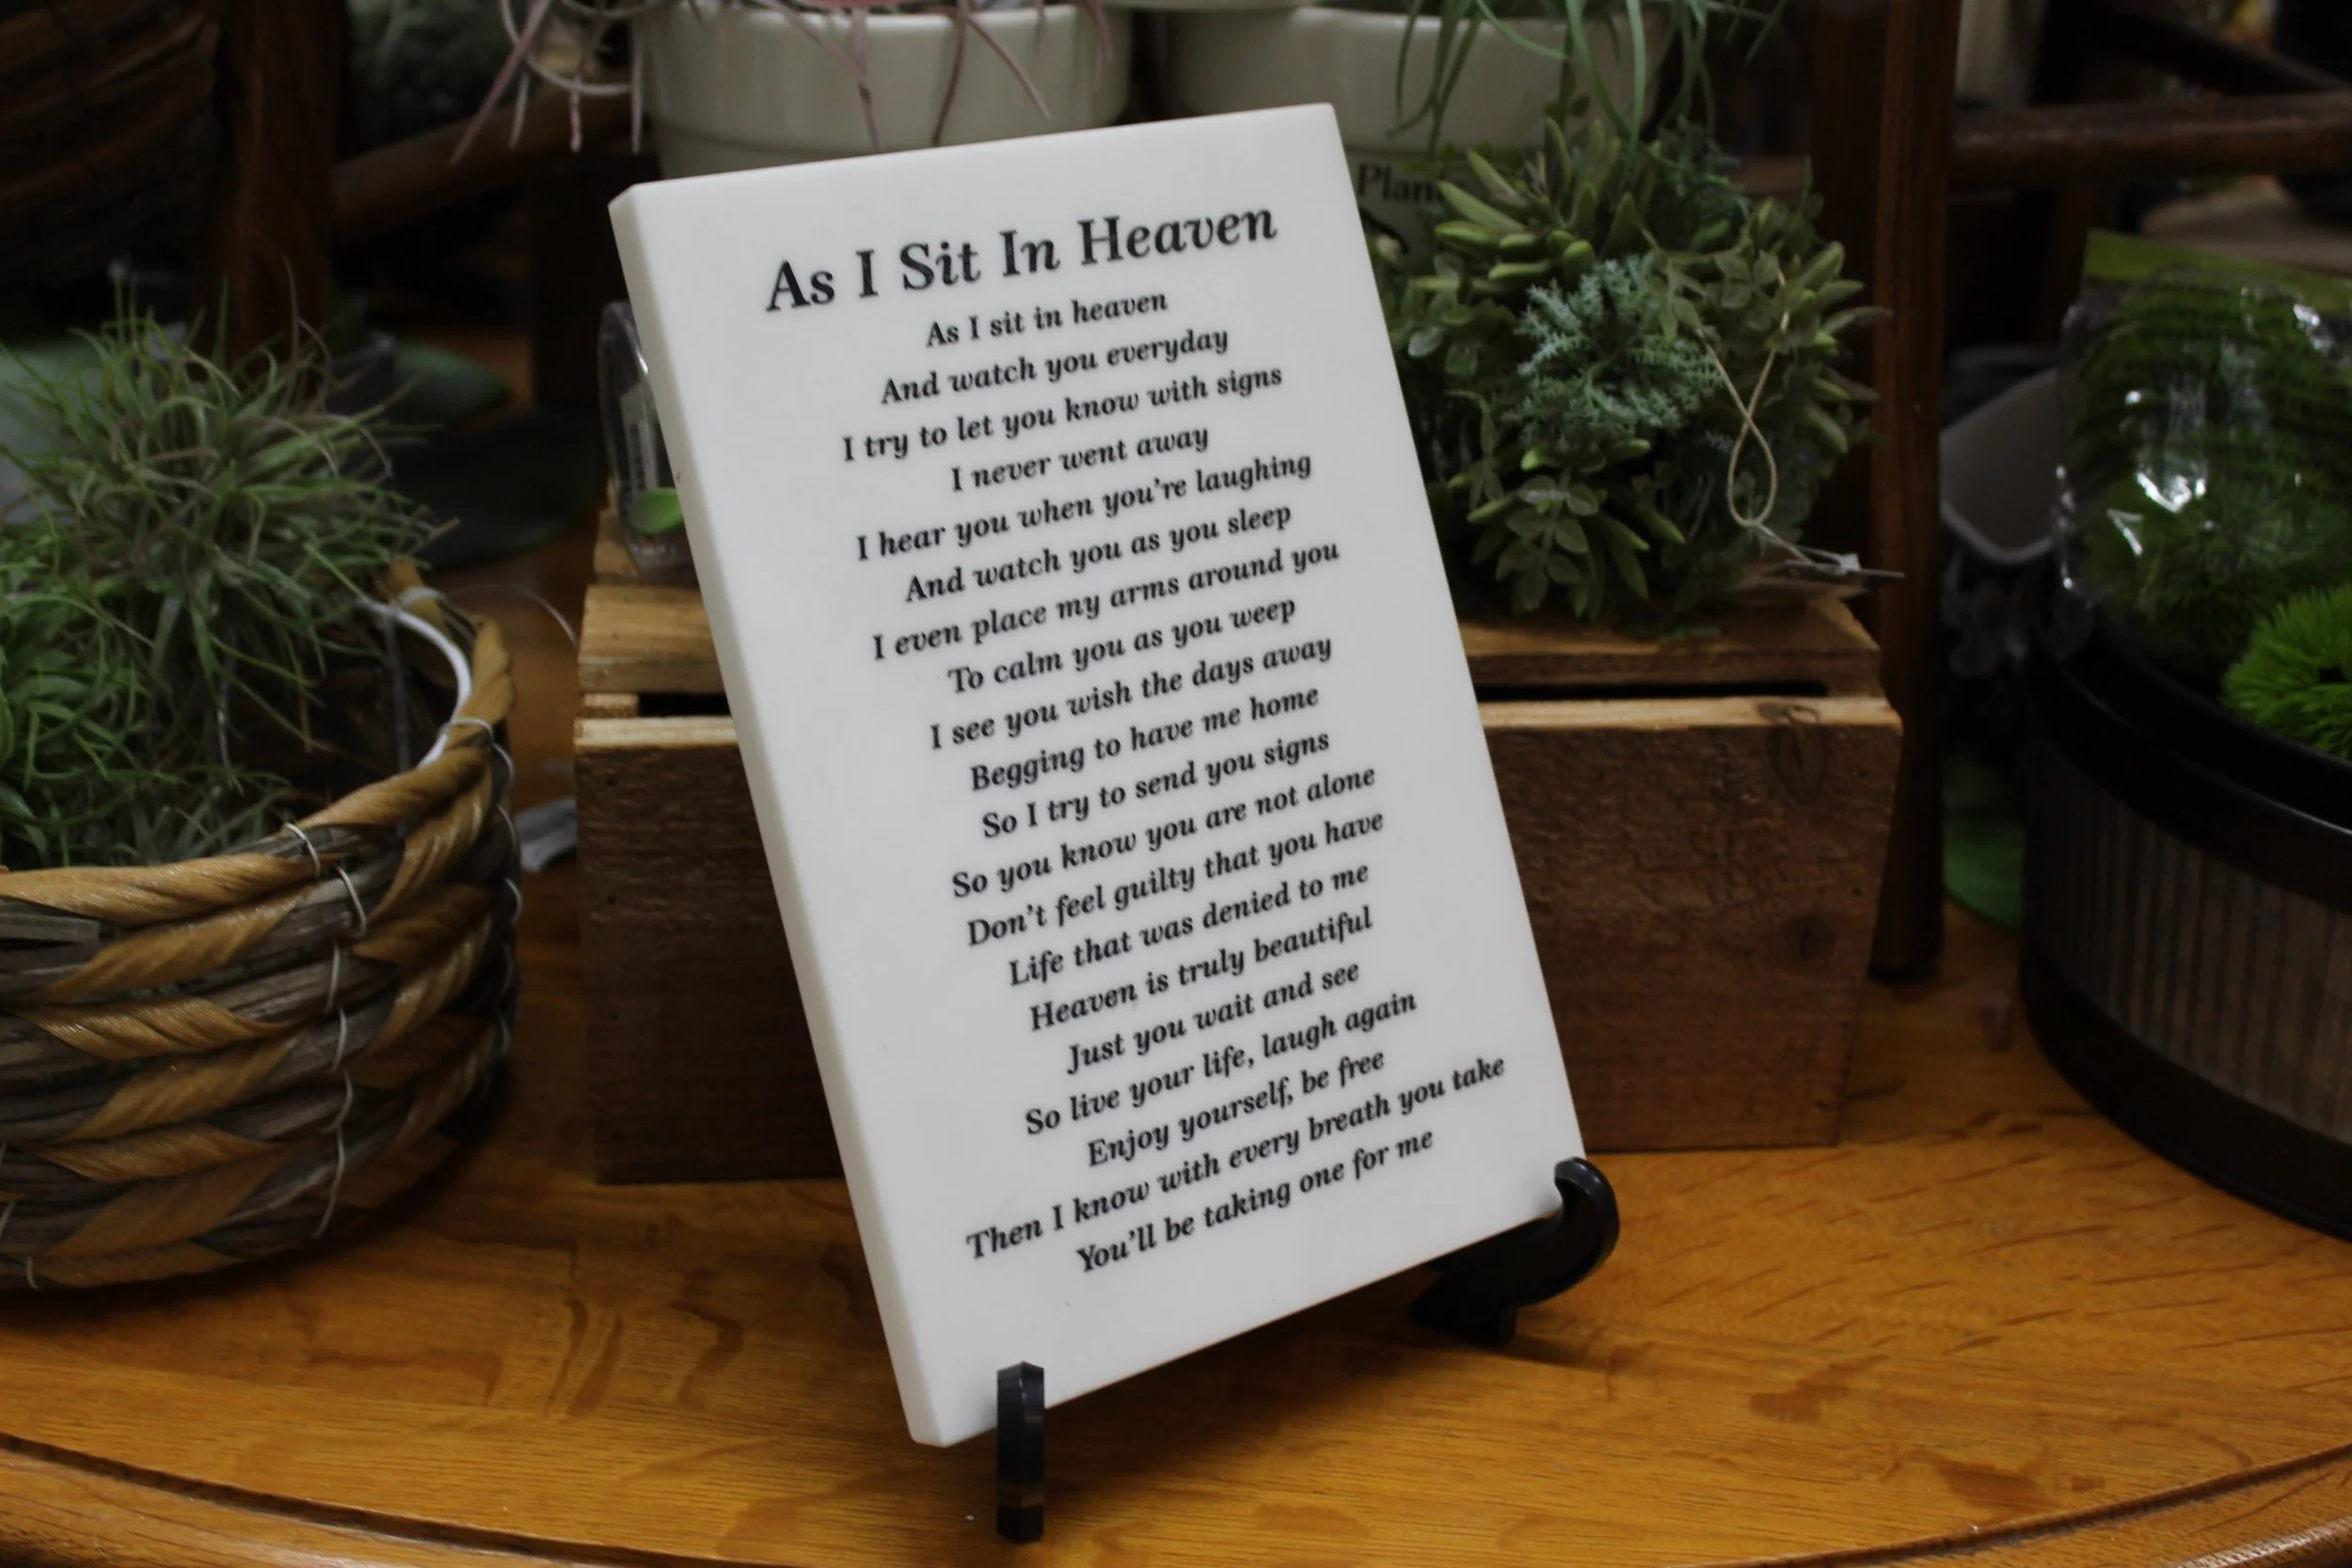 As I Sit In Heaven
As I sit in heaven
And watch you everyday
I try to let you know with signs
I never went away
I hear you when you're laughing
And watch you as you sleep
I even place my arms around you
To calm you as you weep
I see you wish the days away
Begging to have me home
So I try to send you signs
So you know you are not alone
Don't feel guilty that you have
Life that was denied to me
Heaven is truly beautiful
Just you wait and see
So live your life, laugh again
Enjoy yourself, be free
Then I know with every breath you take
You'll be taking one for me